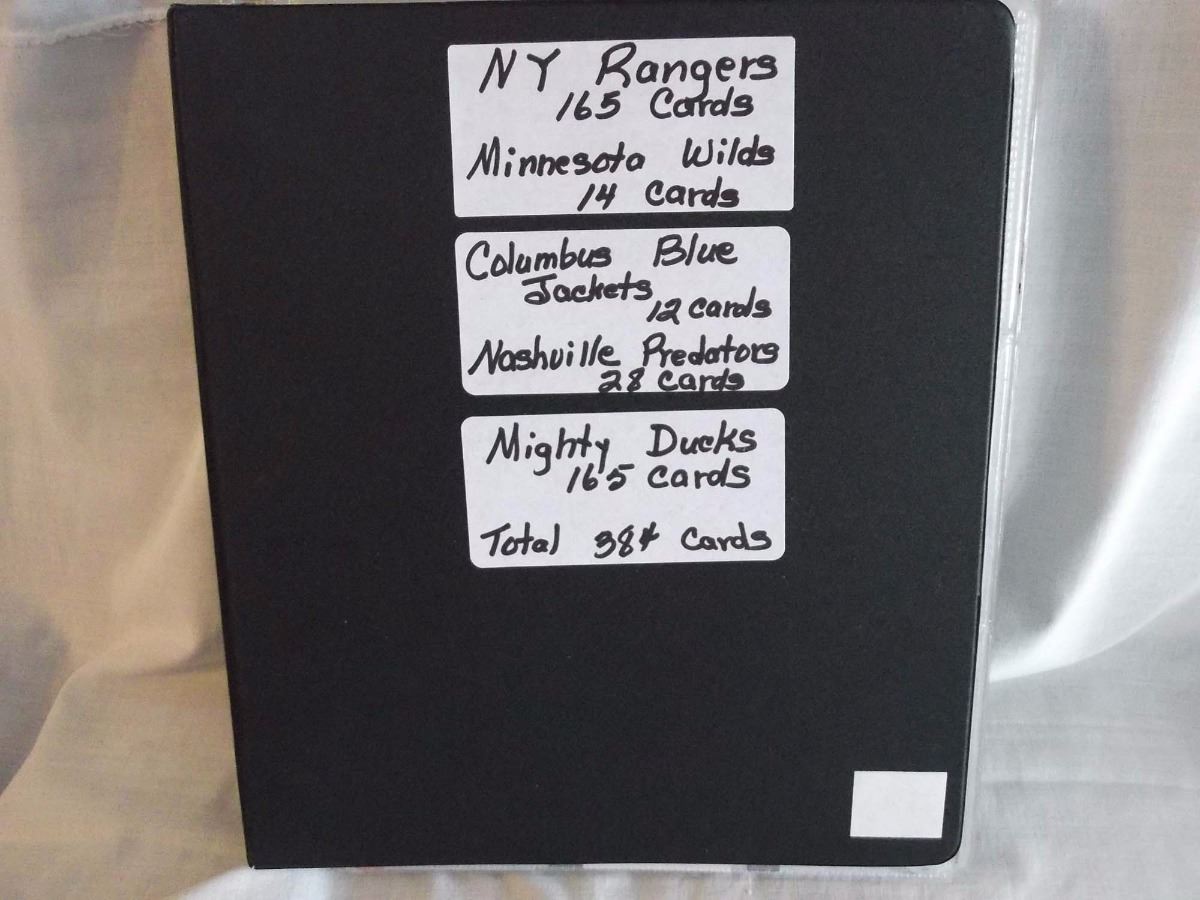 NY Rangers
165 Cards
Minnesota Wilds
14 Cards
Columbus Blue
Jackets
12 cards
Nashville Predators
28 cards
Mighty Ducks
165 cards
Total 384 Cards